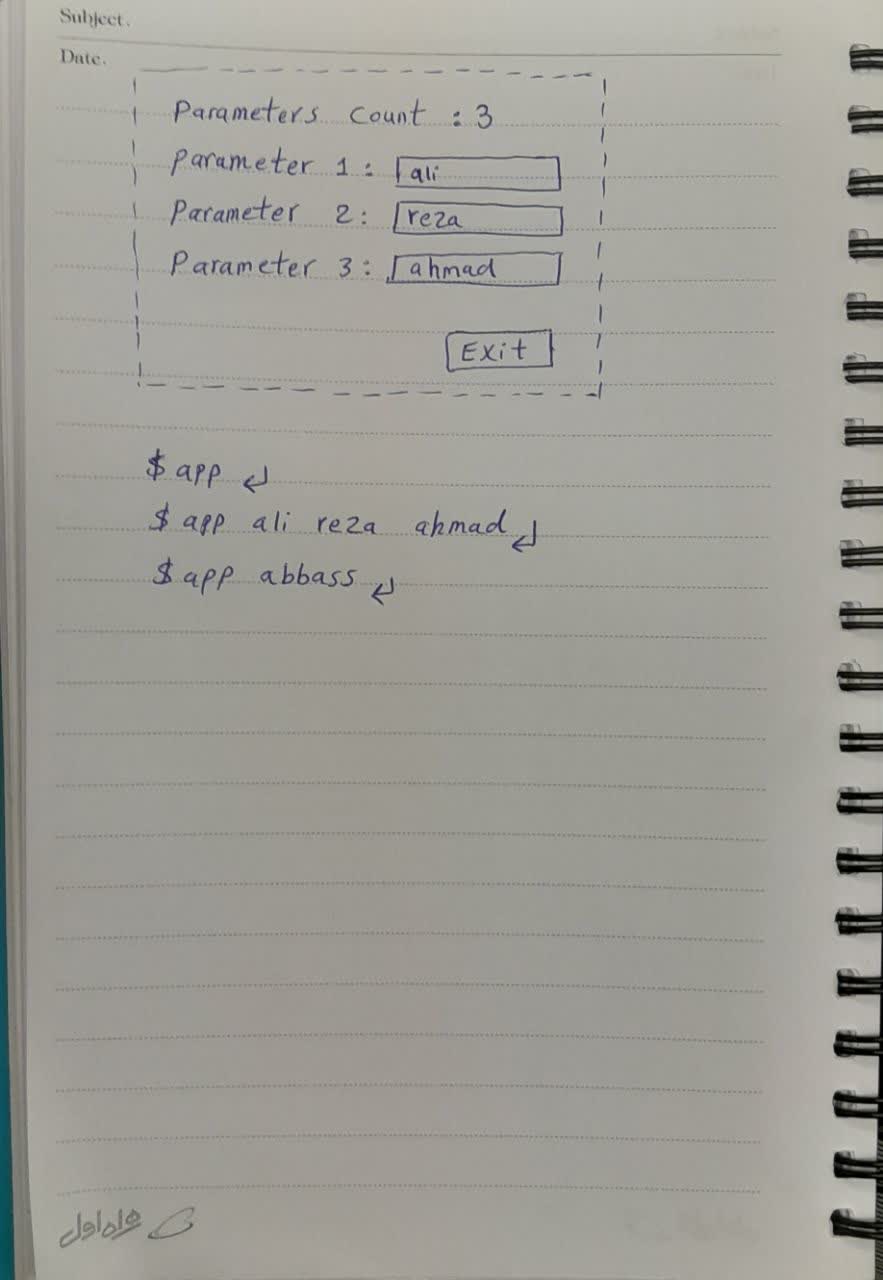 Subject.
Date.
Parameters Count : 3
Parameter 1 : ali
Parameter 2 : reza
Parameter 3 : ahmad
Exit
$ app ↵
$ app ali reza ahmad ↵
$ app abbass ↵
همراه اول